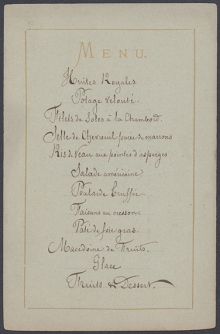 MENU.
Huîtres Royales
Potage velouté
Filets de Soles à la Chambord
Selle de Chevreuil purée de marrons
Ris de veau aux pointes d'asperges
Salade américaine
Poularde truffée
Faisans au cresson
Pâté de foie gras
Macédoine de Fruits
Glace
Fruits & Dessert.